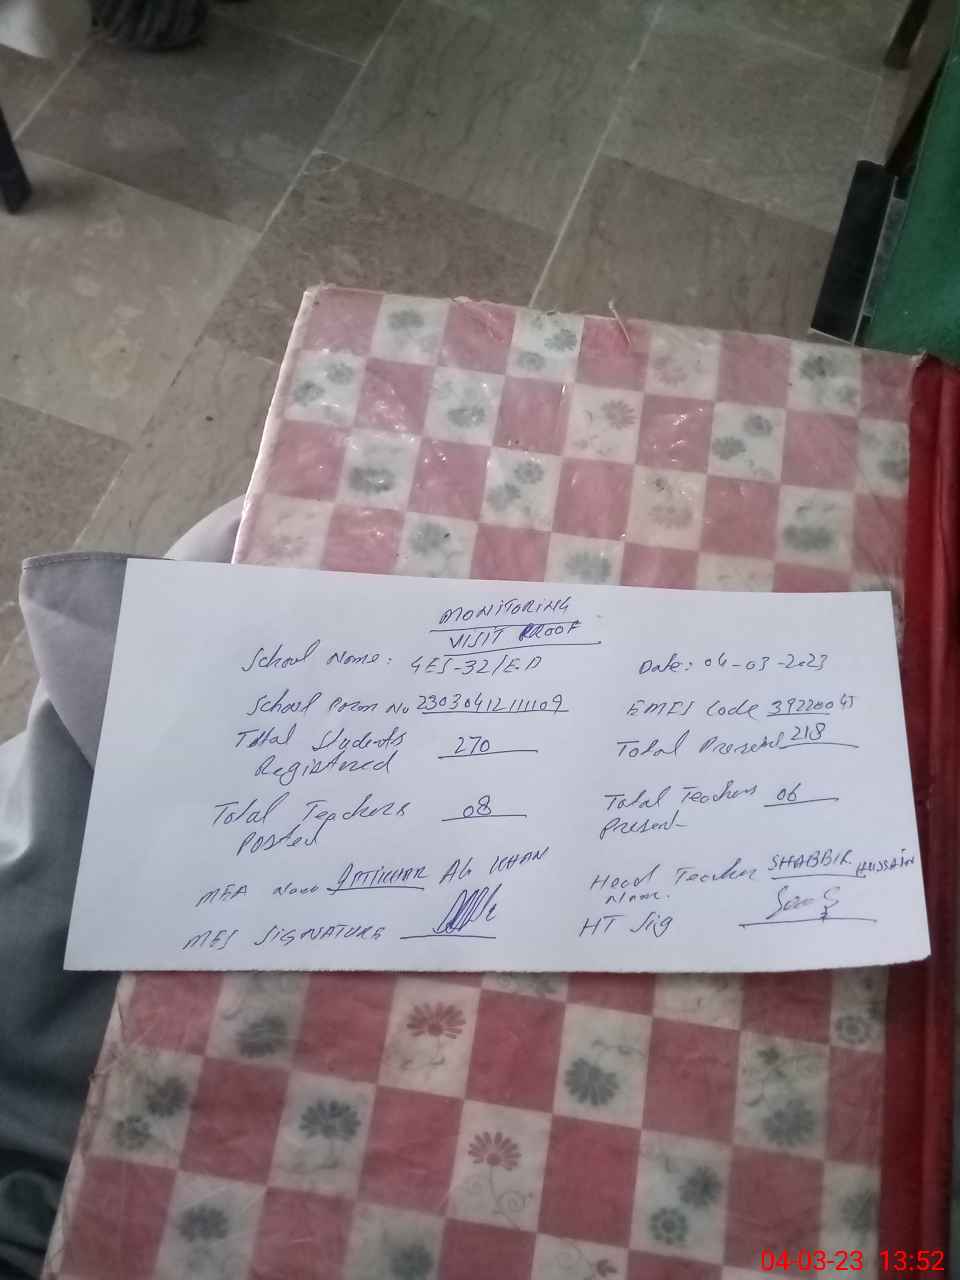 MONITORING
VISIT PROOF
School Name: GES-32/E.D Date: 04-03-2023
School Porm No 23030412111109 EMES Code 39220045
Total Students 270 Total Present 218
Registered
Total Teachers 08 Total Teachers 06
Posted Present
MEA Name Iftikhar Ali KHAN Head Teacher SHABBIR HUSSAIN
Name.
MES SIGNATURE HT Sig
04-03-23 13:52